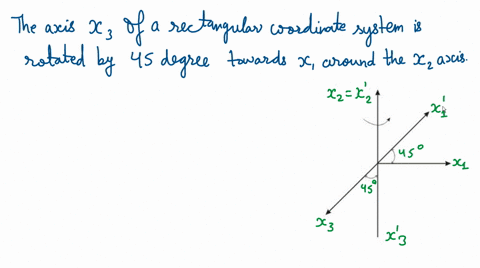 The axis x₃ of a rectangular coordinate system is
rotated by 45 degree towards x₁ around the x₂ axis.
x₂ = x₂'
x₁'
45°
x₁
45°
x₃
x₃'